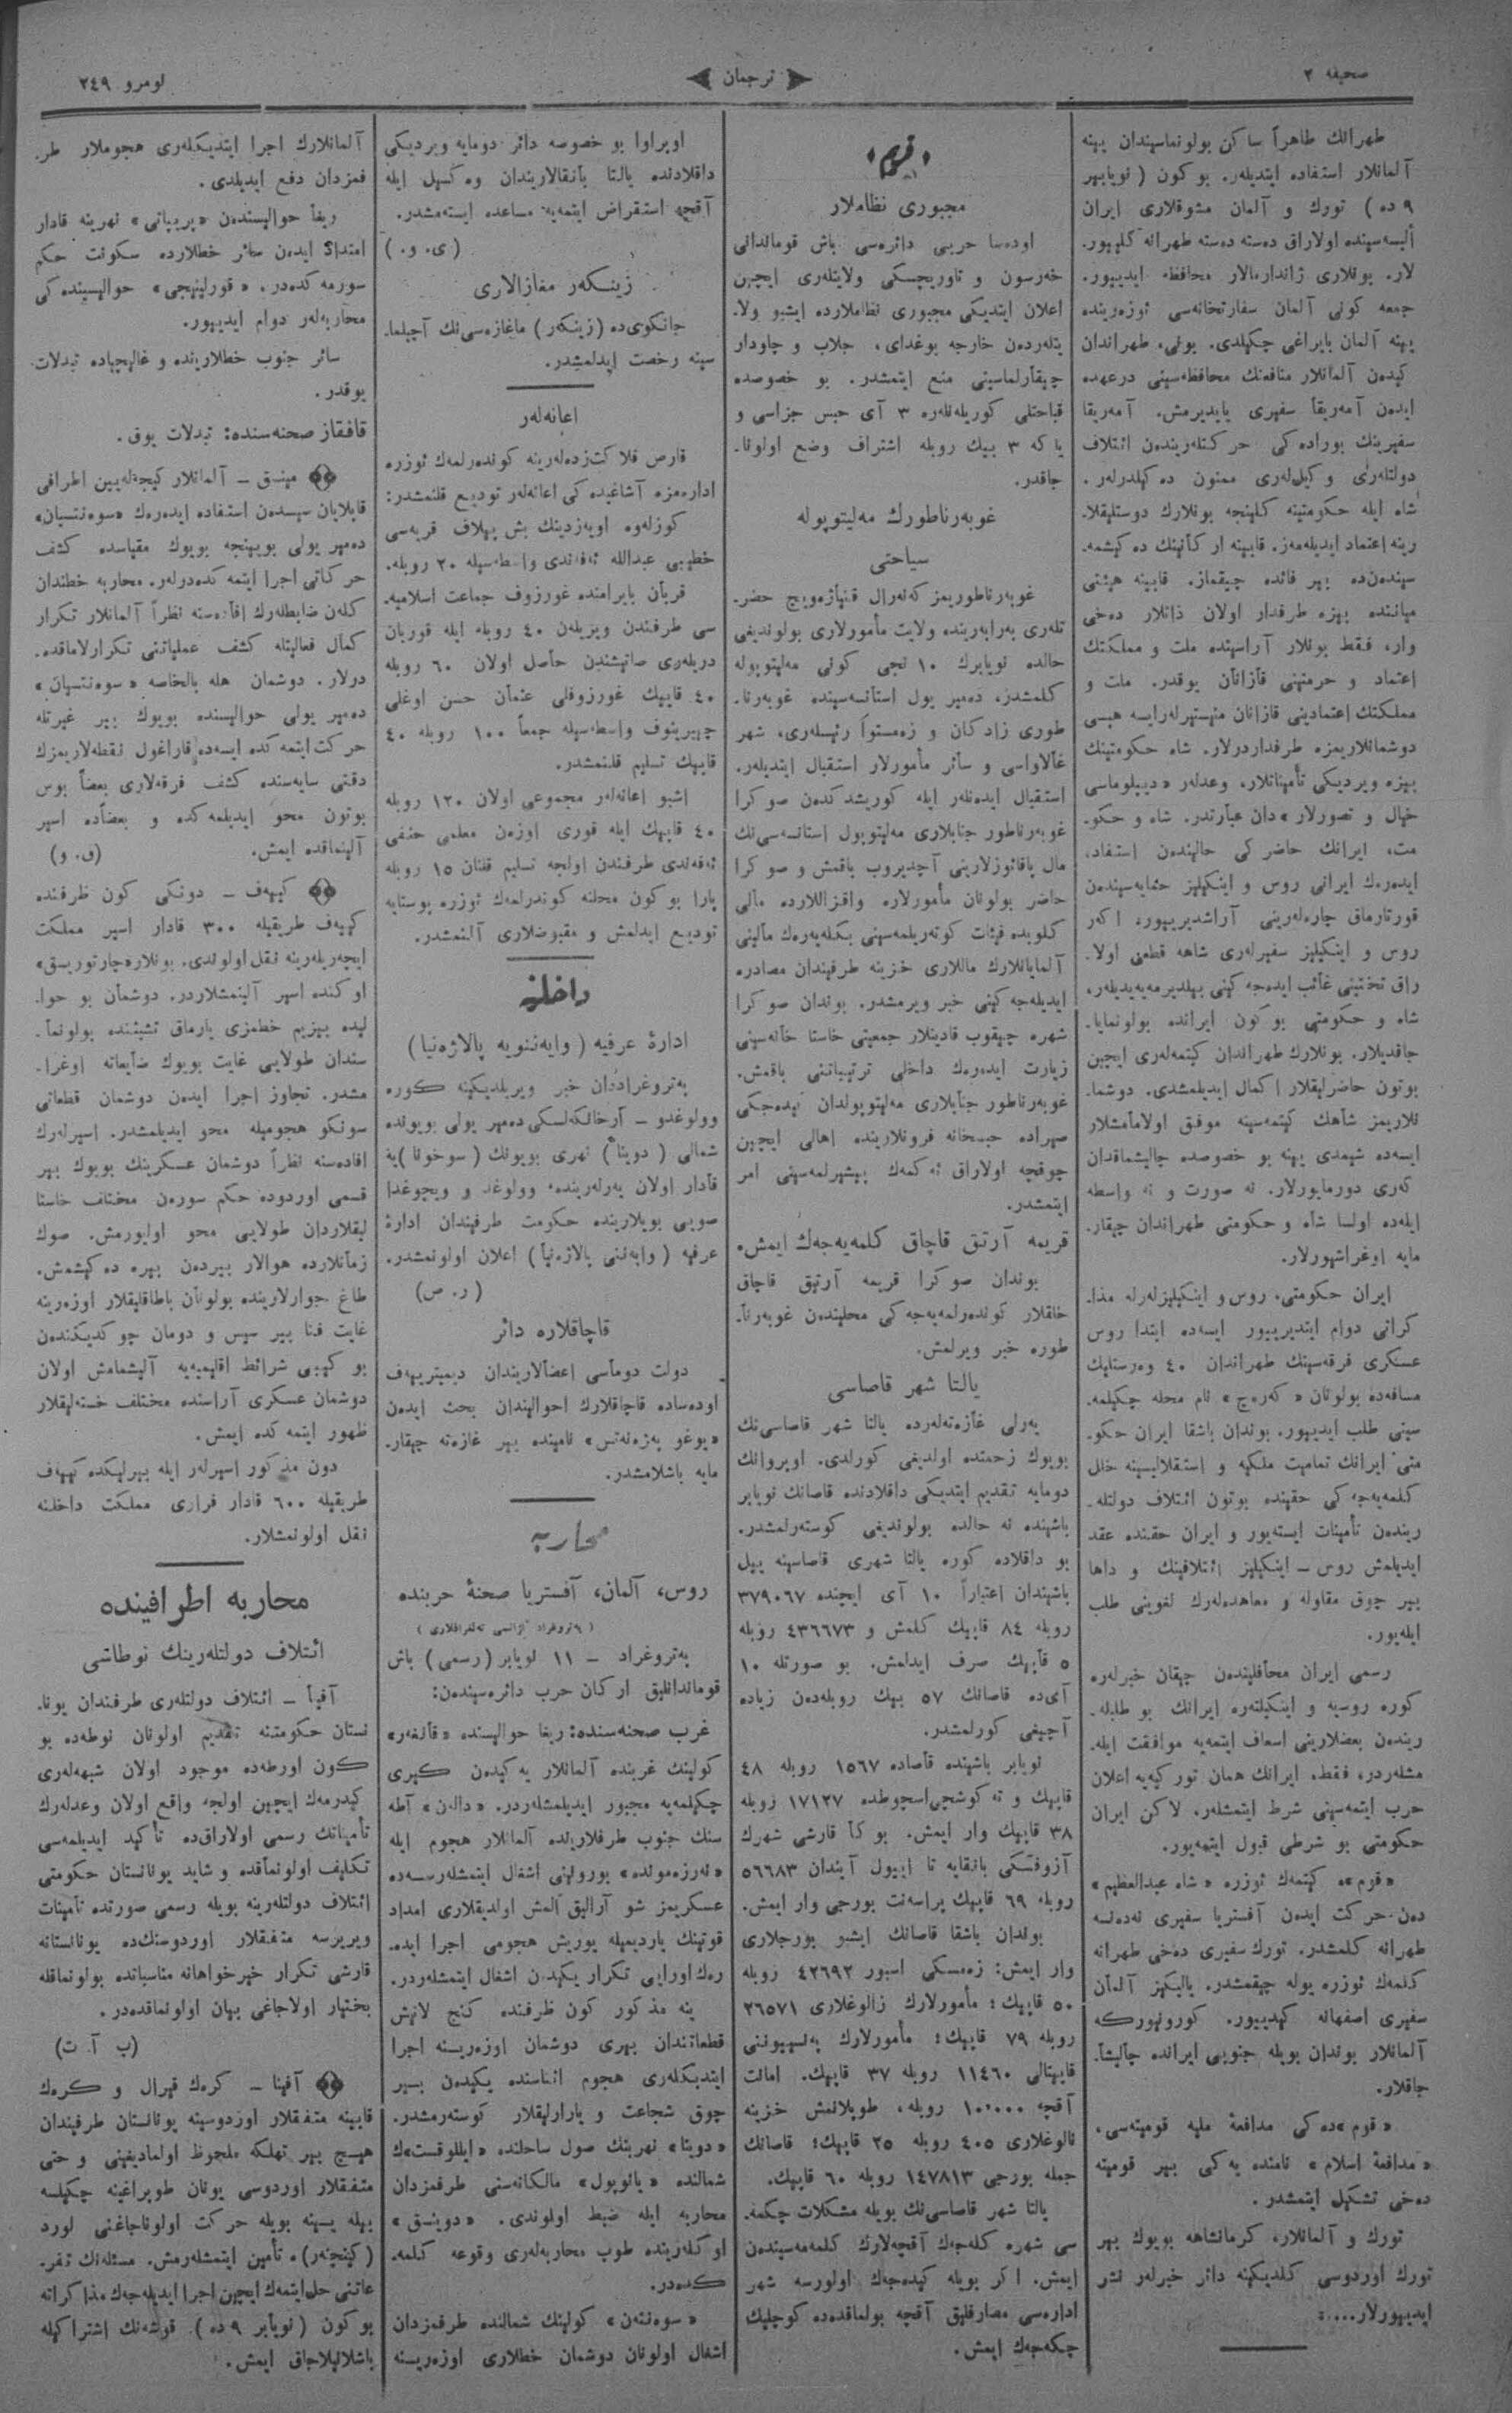 صحیفه ۲
ترجمان
نومرو ۲۴۹
طهرانك ظاهراً ساكن بولونماسیندان یینه
آلمانلار استفاده ایتدیلەر. بوكون (نویابیر
۹ ده) تورك و آلمان مشوقلاری ایران
ألبسه‌سینده اولاراق دسته دسته طهرانه كلیپور.
لار. بونلاری ژاندارمالار محافظه ایدیپور.
جمعه كونی آلمان سفارتخانه‌سی ئوزه‌رینده
یینه آلمان بایراغی چكیلدی. بونی، طهراندان
كیدن آلمانلار منافعنك محافظه‌سینی درعهده
ایدن آمەریقا سفیری یاپدیرمش. آمەریقا
سفیرینك بوراده‌كی حركتله‌ریندن ائتلاف
دولتلەری وكیل‌لەری ممنون ده‌كیلدرلەر.
شاه ایله حكومتینه كلینجه بونلارك دوستلیقلا.
رینه اعتماد ایدیله‌مەز. قابینه‌لر كانینك ده‌كیشمه.
سیندن‌ده بیر فائده چیقماز. قابینه هیئتی
میاننده بیزه طرفدار اولان ذاتلار دەخی
وار، فقط بونلار آراسینده ملت و مملكتك
اعتماد و حرمتینی قازانان یوقدر. ملت و
مملكتك اعتمادینی قازانان مینیستیرلەرایسه هپسی
دوشمانلاریمزه طرفداردرلار. شاه حكومتینك
بیزه ویردیكی تأمیناتلار، وعدلەر «دیپلوماسی
خیال و تصورلار» دان عبارتدر. شاه و حكو.
مت، ایرانك حاضركی حالیندن استفاده
ایده‌رك ایرانی روس و اینكلیز حمایه‌سیندن
قورتارماق چاره‌لەرینی آراشدیریپور، اكر
روس و اینكلیز سفیرلەری شاهه قطعی اولا.
راق تختینی غائب ایده‌جه‌كینی بیلدیرمه‌یه‌یدیلەر،
شاه و حكومتی بوكون ایرانده بولونمایا.
جاقدیلار. بونلارك طهراندان كیتمه‌لەری ایچین
بوتون حاضرلیقلار اكمال ایدیلمشدی. دوشما.
نلاریمز شاهك كیتمه‌سینه موفق اولامامشلار
ایسه‌ده شیمدی یینه بو خصوصده چالیشماقدان
كەری دورمایورلار. نه صورت و نه واسطه
ایله‌ده اولسا شاه و حكومتی طهراندان چیقار.
مایه اوغراشیورلار.
ایران حكومتی، روس و اینكلیزلەرله مذا.
كراتی دوام ایتدیریپور ایسه‌ده ابتدا روس
عسكری فرقه‌سینك طهراندان ۴۰ وەرستلیك
مسافه‌ده بولونان «كەرەج» نام محله چكیلمه.
سینی طلب ایدیپور. بوندان باشقا ایران حكو.
متی ایرانك تمامیت ملكیه و استقلالیسینه خلل
كلمه‌یه‌جه‌كی حقینده بوتون ائتلاف دولتله.
ریندن تأمینات ایسته‌یور و ایران حقینده عقد
ایدیلمش روس – اینكلیز ائتلافینك و داها
بیر چوق مقاوله و معاهده‌لەرك لغوینی طلب
ایله‌یور.
رسمی ایران محافلیندن چیقان خبرلەره
كوره روسیه و اینكیلتەره ایرانك بو طلبله.
ریندن بعضلارینی اسعاف ایتمه‌یه موافقت ایله.
مشلەردر، فقط، ایرانك همان توركیه‌یه اعلان
حرب ایتمه‌سینی شرط ایتمشلەر، لاكن ایران
حكومتی بو شرطی قبول ایتمه‌یور.
«قوم»ه كیتمك ئوزره «شاه عبدالعظیم»
دن حركت ایدن آفستریا سفیری نەدەنسه
طهرانه كلمشدر. تورك سفیری دەخی طهرانه
كلمك ئوزره یوله چیقمشدر. یالیكیز آلمان
سفیری اصفهانه كیدیپور. كورونیوركه
آلمانلار بوندان بویله جنوبی ایرانده چالیشا.
جاقلار.
«قوم»ده‌كی مدافعۀ ملیه قومیته‌سی،
«مدافعۀ اسلام» نامنده یەكی بیر قومیته
دەخی تشكیل ایتمشدر.
تورك و آلمانلار، كرمانشاهه بویوك بیر
تورك اوردوسی كلدیكینه دائر خبرلەر نشر
ایدیپورلار....
قریم
مجبوری نظاملار
اودەسا حربی دائره‌سی باش قوماندانی
خەرسون و تاوریچسكی ولایتلەری ایچین
اعلان ایتدیكی مجبوری نظاملارده ایشبو ولا.
یتلەردن خارجه بوغدای، جلاب و چاودار
چیقارلماسینی منع ایتمشدر. بو خصوصده
قباحتلی كوریله‌نلەره ۳ آی حبس جزاسی و
یاكه ۳ بیك روبله اشتراف وضع اولونا.
جاقدر.
غوبەرناطورك مەلیتوپوله
سیاحتی
غوبەرناطوریمز كەنەرال قنیاژەویچ حضر.
تلەری بەرابەرینده ولایت مأمورلاری بولوندیغی
حالده نویابرك ۱۰ نجی كونی مەلیتوپوله
كلمشدر، دەمیر یول استانسه‌سینده غوبەرنا.
طوری زادكان و زەمستوا رئیسلەری، شهر
غالاواسی و سائر مأمورلار استقبال ایتدیلەر.
استقبال ایدەنلەر ایله كوریشدكدن صوكرا
غوبەرناطور جنابلاری مەلیتوپول استانسه‌سی‌نك
مال پاقاغوزلارینی آچدیروب باقمش و صوكرا
حاضر بولونان مأمورلاره واقزاللارده مالی
كلوبده فیئات كوتەریلمه‌سینی بكله‌یه‌رك مالینی
آلمایانلارك ماللاری خزینه طرفیندان مصادره
ایدیله‌جه‌كینی خبر ویرمشدر. بوندان صوكرا
شهره چیقوب قادینلار جمعیتی خاستا خانه‌سینی
زیارت ایده‌رك داخلی ترتیباتنی باقمش.
غوبەرناطور جنابلاری مەلیتوپولدان كیده‌جكی
صیراده جبخانه فرونلارینده اهالی ایچین
چوقچه اولاراق ئەكمەك پیشیرلمه‌سینی امر
ایتمشدر.
قریمه آرتق قاچاق كلمه‌یه‌جه‌ك ایمش.
بوندان صوكرا قریمه آرتیق قاچاق
خلقلار كوندەرلمه‌یه‌جه‌كی محلیندن غوبەرنا.
طوره خبر ویرلمش.
یالتا شهر قاصاسی
یەرلی غازەته‌لەرده یالتا شهر قاصاسی‌نك
بویوك زحمتده اولدیغی كورلدی. اوپروانك
دومایه تقدیم ایتدیكی داقلادنده قاصانك نویابر
باشینده نه حالده بولوندیغی كوسته‌رلمشدر.
بو داقلاده كوره یالتا شهری قاصاسینه ییل
باشیندان اعتباراً ۱۰ آی ایچنده ۳۷۹۰۶۷
روبله ۸۴ قاپیك كلمش و ۴۳۶۶۷۳ روبله
۵ قاپیك صرف ایدلمش. بو صورتله ۱۰
آی‌ده قاصانك ۵۷ بیك روبله‌دن زیاده
آچیغی كورلمشدر.
نویابر باشینده قاصاده ۱۵۶۷ روبله ۴۸
قاپیك و تەكوشچی‌اسچوطده ۱۷۱۲۷ روبله
۳۸ قاپیك وار ایمش. بوكا قارشی شهرك
آزوفسكی بانقایه تا ایپول آیندان ۵۶۶۸۳
روبله ۶۹ قاپیك پراسەنت بورجی وار ایمش.
بوندان باشقا قاصانك ایشبو بورجلاری
وار ایمش: زەمسكی اسبور ۴۲۶۹۲ روبله
۵۰ قاپیك؛ مأمورلارك زالوغلاری ۲۶۵۷۱
روبله ۷۹ قاپیك؛ مأمورلارك پەنسیوننی
قاپیتالی ۱۱۴۶۰ روبله ۳۷ قاپیك. امانت
آقچه ۱۰،۰۰۰ روبله، طوپلانمش خزینه
نالوغلاری ۴۰۵ روبله ۲۵ قاپیك؛ قاصانك
جمله بورجی ۱۴۷۸۱۳ روبله ۶۰ قاپیك.
یالتا شهر قاصاسی‌نك بویله مشكلات چكمه.
سی شهره كله‌جەك آقچه‌لارك كلمه‌مه‌سیندن
ایمش. اكر بویله كیده‌جەك اولورسه شهر
اداره‌سی مصارفلیق آقچه بولماقده‌ده كوچلیك
چكه‌جەك ایمش.
اوپراوا بو خصوصه دائر دومایه ویردیكی
داقلادنده یالتا بانقالاریندان وەكسیل ایله
آقچه استقراض ایتمه‌یه مساعده ایسته‌مشدر.
(ی. و.)
زینكەر مغازالاری
جانكوی‌ده (زینكەر) ماغازه‌سی‌نك آچیلما.
سینه رخصت ایدلمشدر.
اعانه‌لەر
قارص فلاكت‌زده‌لەرینه كوندەرلمەك ئوزره
اداره‌مزه آشاغیده‌كی اعانه‌لەر تودیع قلنمشدر:
كوزلەوه اویەزدینك بش ییلاف قریه‌سی
خطیبی عبدالله ئەفەندی واسطه‌سیله ۲۰ روبله.
قربان بایرامنده غورزوف جماعت اسلامیه.
سی طرفندن ویریلن ۴۰ روبله ایله قوربان
دریلەری صاتیشندن حاصل اولان ۶۰ روبله
۴۰ قاپیك غورزوفلی عثمان حسن اوغلی
چیرینوف واسطه‌سیله جمعاً ۱۰۰ روبله ۴۰
قاپیك تسلیم قلنمشدر.
اشبو اعانه‌لەر مجموعی اولان ۱۲۰ روبله
۴۰ قاپیك ایله قوری اوزەن معلمی حنفی
ئەفەندی طرفندن اولجه تسلیم قلنان ۱۵ روبله
پارا بوكون محلنه كوندرلمك ئوزره پوستایه
تودیع ایدلمش و مقبوضلاری آلنمشدر.
داخلیه
ادارۀ عرفیه (وایەننویه پالاژەنیا)
پەتروغراددان خبر ویریلدیكینه كوره
وولوغدو – آرخانكەلسكی دەمیر یولی بویونده
شمالی (دوینا) نهری بویونك (سوخونا) یه
قادار اولان یەرلەرینده، وولوغد و ویچوغدا
صویی بویلارینده حكومت طرفیندان ادارۀ
عرفیه (وایەننی پالاژەنیا) اعلان اولونمشدر.
(ر. ص)
قاچاقلاره دائر
دولت دوماسی اعضالاریندان دیمیتریەف
اودەساده قاچاقلارك احوالیندان بحث ایدن
«یوغو بەژەنەتس» نامینده بیر غازەته چیقار.
مایه باشلامشدر.
محاربه
روس، آلمان، آفستریا صحنۀ حربنده
(پەتروغراد آژانسی تەلغرافلاری)
پەتروغراد – ۱۱ نویابر (رسمی) باش
قوماندانلیق اركان حرب دائره‌سیندن:
غرب صحنه‌سنده: ریغا حوالیسنده «قانغەر»
كولینك غربنده آلمانلار یەكیدن كیری
چكیلمه‌یه مجبور ایدیلمشلەردر. «دالەن» آطه
سنك جنوب طرفلارینده آلمانلار هجوم ایله
«ئەرزەموندە» یورونی اشغال ایتمشلەرسه‌ده
عسكریمز شو آرالیق آلمش اولدیقلاری امداد
قوتینك یاردیمیله یوریش هجومی اجرا ایده.
ره‌ك اورایی تكرار یكیدن اشغال ایتمشلەردر.
ینه مذكور كون ظرفنده كنج لاتیش
قطعاتندان بیری دوشمان اوزه‌رینه اجرا
ایتدیكلەری هجوم اثناسنده یكیدن بیر
چوق شجاعت و یارارلیقلار كوستەرمشدر.
«دوینا» نهرینك صول ساحلنده «ایللوقست»ك
شمالنده «یانوپول» مالكانه‌سنی طرفمزدان
محاربه ایله ضبط اولوندی. «دوینسق»
اوكلەرینده طوپ محاربه‌لەری وقوعه كلمه.
كده‌در.
«سوەنتەن» كولینك شمالنده طرفمزدان
اشغال اولونان دوشمان خطلاری اوزه‌رینه
آلمانلارك اجرا ایتدیكلەری هجوملار طر.
فمزدان دفع ایدیلدی.
ریغا حوالیسندن «پریپاتی» نهرینه قادار
امتداد ایدن سائر خطلارده سكونت حكم
سورمه‌كده‌در، «قورلینجی» حوالیسینده‌كی
محاربه‌لەر دوام ایدیپور.
سائر جنوب خطلارینده و غالیچیاده تبدلات
یوقدر.
قافقاز صحنه‌سنده: تبدلات یوق.
مینسق – آلمانلار كیجه‌لەیین اطرافی
قاپلایان سیسدن استفاده ایده‌رەك «سوەنتسیان»
دەمیر یولی بویینجه بویوك مقیاسده كشف
حركاتی اجرا ایتمه‌كده‌درلەر. محاربه خطندان
كلەن ضابطلەرك افاده‌سنه نظراً آلمانلار تكرار
كمال فعالیتله كشف عملیاتنی تكرارلاماقده.
درلار. دوشمان هله بالخاصه «سوەنتسیان»
دەمیر یولی حوالیسنده بویوك بیر غیرتله
حركت ایتمه‌كده ایسه‌ده قاراغول نقطه‌لاریمزك
دقتی سایه‌سنده كشف فرقه‌لاری بعضاً بوس
بوتون محو ایدیلمه‌كده و بعضاًده اسیر
آلینماقده ایمش. (ق. و)
كییەف – دونكی كون ظرفنده
كییەف طریقیله ۳۰۰ قادار اسیر مملكت
ایچه‌ریلەرینه نقل اولوندی. بونلاره چارتوریسق»
اوكنده اسیر آلینمشلاردر. دوشمان بو حوا.
لیده بیزیم خطمزی یارماق تشبثنده بولونما.
سندان طولایی غایت بویوك ضایعاته اوغرا.
مشدر. تجاوز اجرا ایدن دوشمان قطعاتی
سونكو هجومیله محو ایدیلمشدر. اسیرلەرك
افاده‌سنه نظراً دوشمان عسكرینك بویوك بیر
قسمی اوردوده حكم سورەن مختلف خاستا
لیقلاردان طولایی محو اولیورمش. صوك
زمانلارده هوالار بیردن بیره ده‌كیشمش.
طاغ جوارلارینده بولونان باطاقلیقلار اوزه‌رینه
غایت فنا بیر سیس و دومان چوكدیكندن
بو كیبی شرائط اقلیمیه‌یه آلیشمامش اولان
دوشمان عسكری آراسنده مختلف خسته‌لیقلار
ظهور ایتمه‌كده ایمش.
دون مذكور اسیرلەر ایله بیرلیكده كییەف
طریقیله ۶۰۰ قادار فراری مملكت داخلنه
نقل اولونمشلار.
محاربه اطرافینده
ائتلاف دولتلەرینك نوطاشی
آفینا – ائتلاف دولتلەری طرفندان یونا.
نستان حكومتنه تقدیم اولونان نوطه‌ده بو
كون اورطه‌ده موجود اولان شبهه‌لەری
كیدرمەك ایچین اولجه واقع اولان وعدلەرك
تأمیناتك رسمی اولاراق‌ده تأكید ایدیلمه‌سی
تكلیف اولونماقده و شاید یونانستان حكومتی
ائتلاف دولتلەرینه بویله رسمی صورتده تأمینات
ویریرسه متفقلار اوردوسنك‌ده یونانستانه
قارشی تكرار خیرخواهانه مناسباتده بولونماقله
بختیار اولاجاغی بیان اولونماقده‌در.
(ب. آ. ت)
آفینا – كرەك قیرال و كرەك
قابینه متفقلار اوردوسینه یونانستان طرفیندان
هیچ بیر تهلكه ملحوظ اولمادیغینی و حتی
متفقلار اوردوسی یونان طوپراغینه چكیلسه
بیله یینه بویله حركت اولوناجاغنی لورد
(كیتچنەر)ه تأمین ایتمشلەرمش. مسئله‌نك تفر.
عاتنی حل ایتمەك ایچین اجرا ایدیله‌جەك مذاكراته
بوكون (نویابر ۹ ده) قوشەنك اشتراكیله
باشلانیلاجاق ایمش.